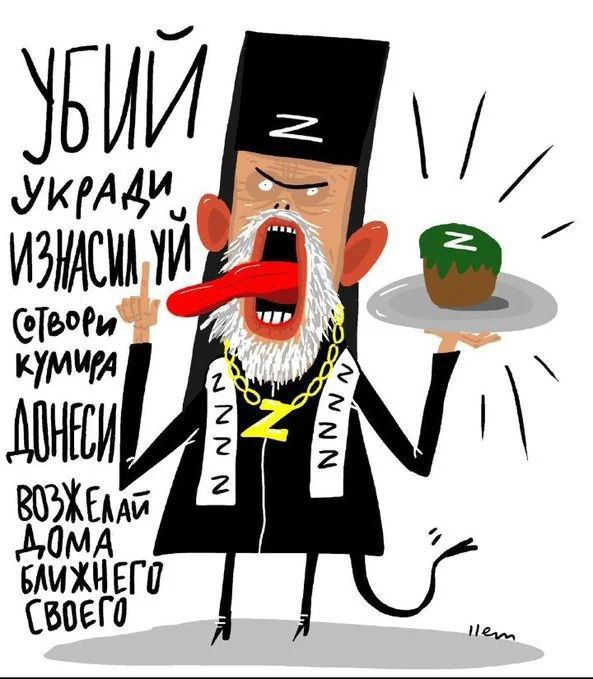 УБИЙ
УКРАДИ
ИЗНАСИЛУЙ
СОТВОРИ
КУМИРА
ДОНЕСИ
ВОЗЖЕЛАЙ
ДОМА
БЛИЖНЕГО
СВОЕГО
Z
Z
Z
Z
Z
Z
Z
Z
Z
Z
Z